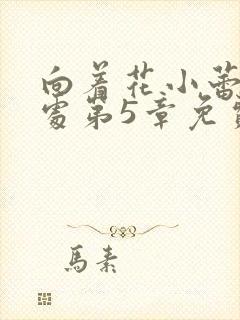 向着花小蕾
处第5章免
馬素